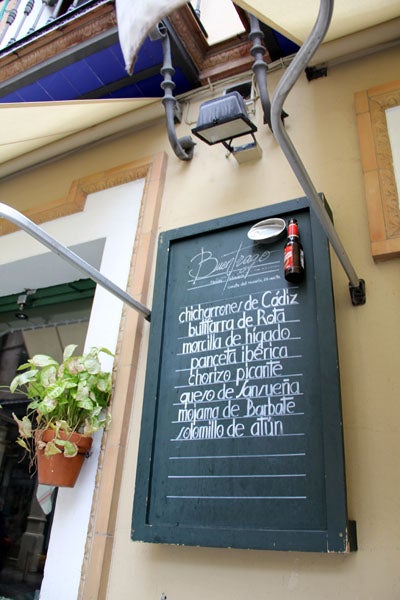 Buenpago
chicharrones de Cádiz
butifarra de Rota
morcilla de hígado
panceta ibérica
chorizo picante
queso de Sansueña
mojama de Barbate
solomillo de atún